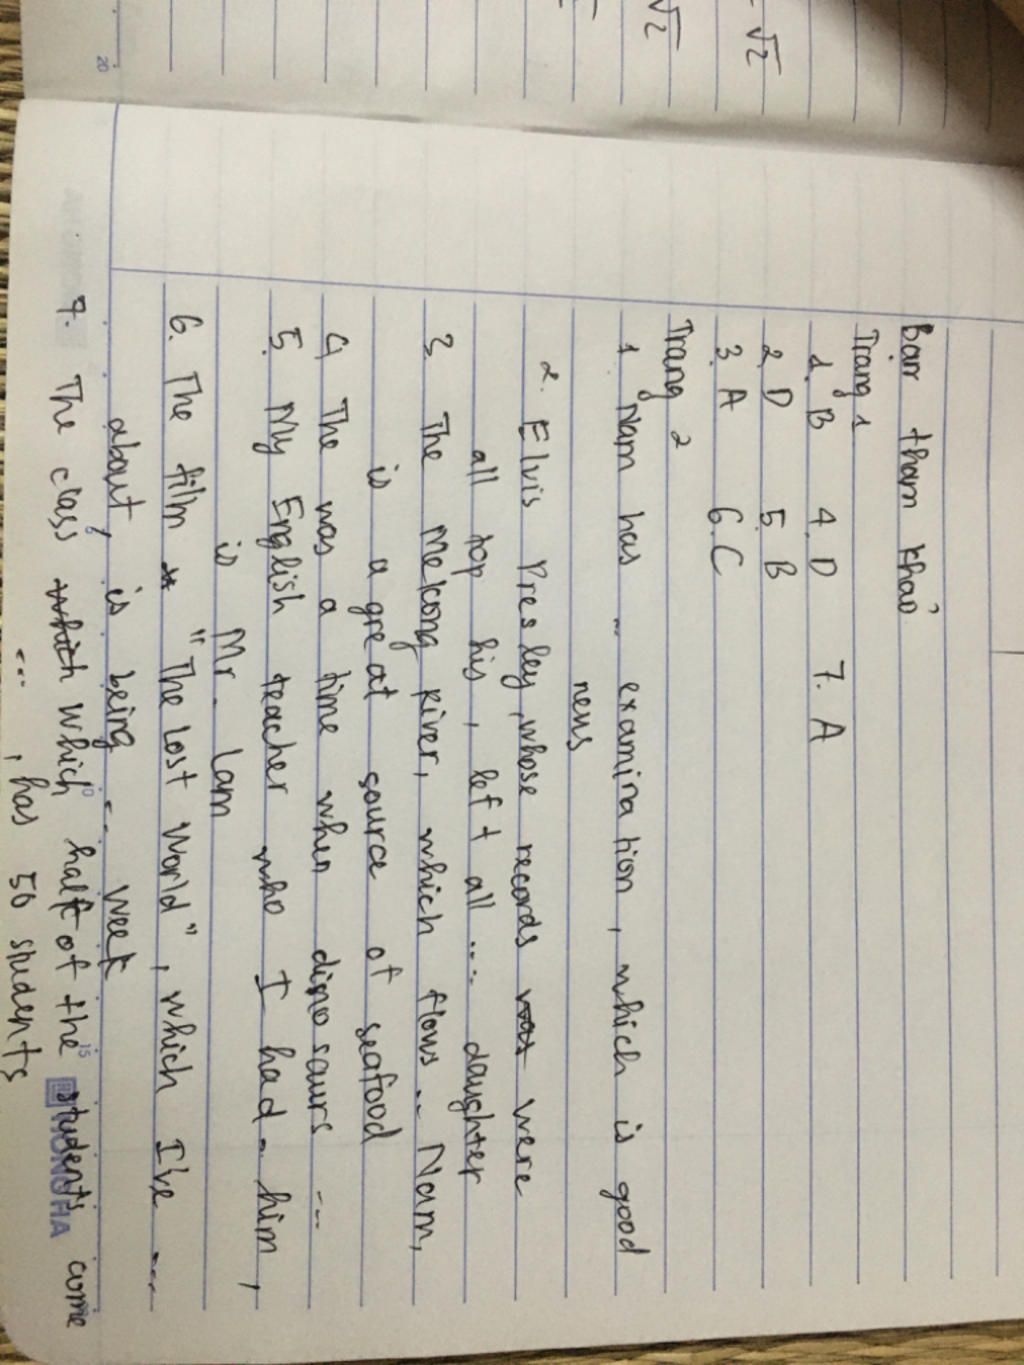 √2
√2
20
Bài tham khảo
Trang 1
1. B 4. D 7. A
2. D 5. B
3. A 6. C
Trang 2
1 Nam has ... examination, which is good
news
2. Elvis Presley, whose records were
all top his, left all .... daughter
3 The Mekong River, which flows ... Nam,
is a great source of seafood
4 The was a time when dinosaurs ...
5. My English teacher who I had ... him,
is Mr. Lam
6. The film "The Lost World", which I've ....
about, is being ... week
7. The class which half of the students come
..., has 50 students
10
15
HONG HA